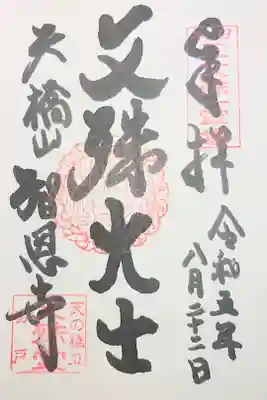 奉拝
令和五年
八月二十二日
文殊大士
天橋山
智恩寺
天の橋立